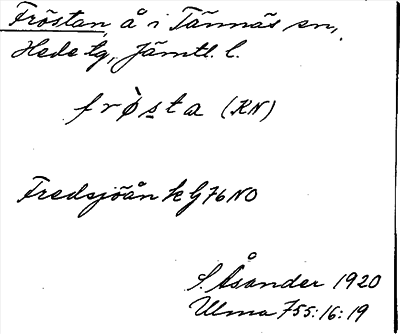 Fröstan, å i Tännäs sn,
Hede tg, Jämtl. l.
frø̀sta (KN)
Fredsjöån k G 76 NO
S. Åsander 1920
Ulma 755:16:19